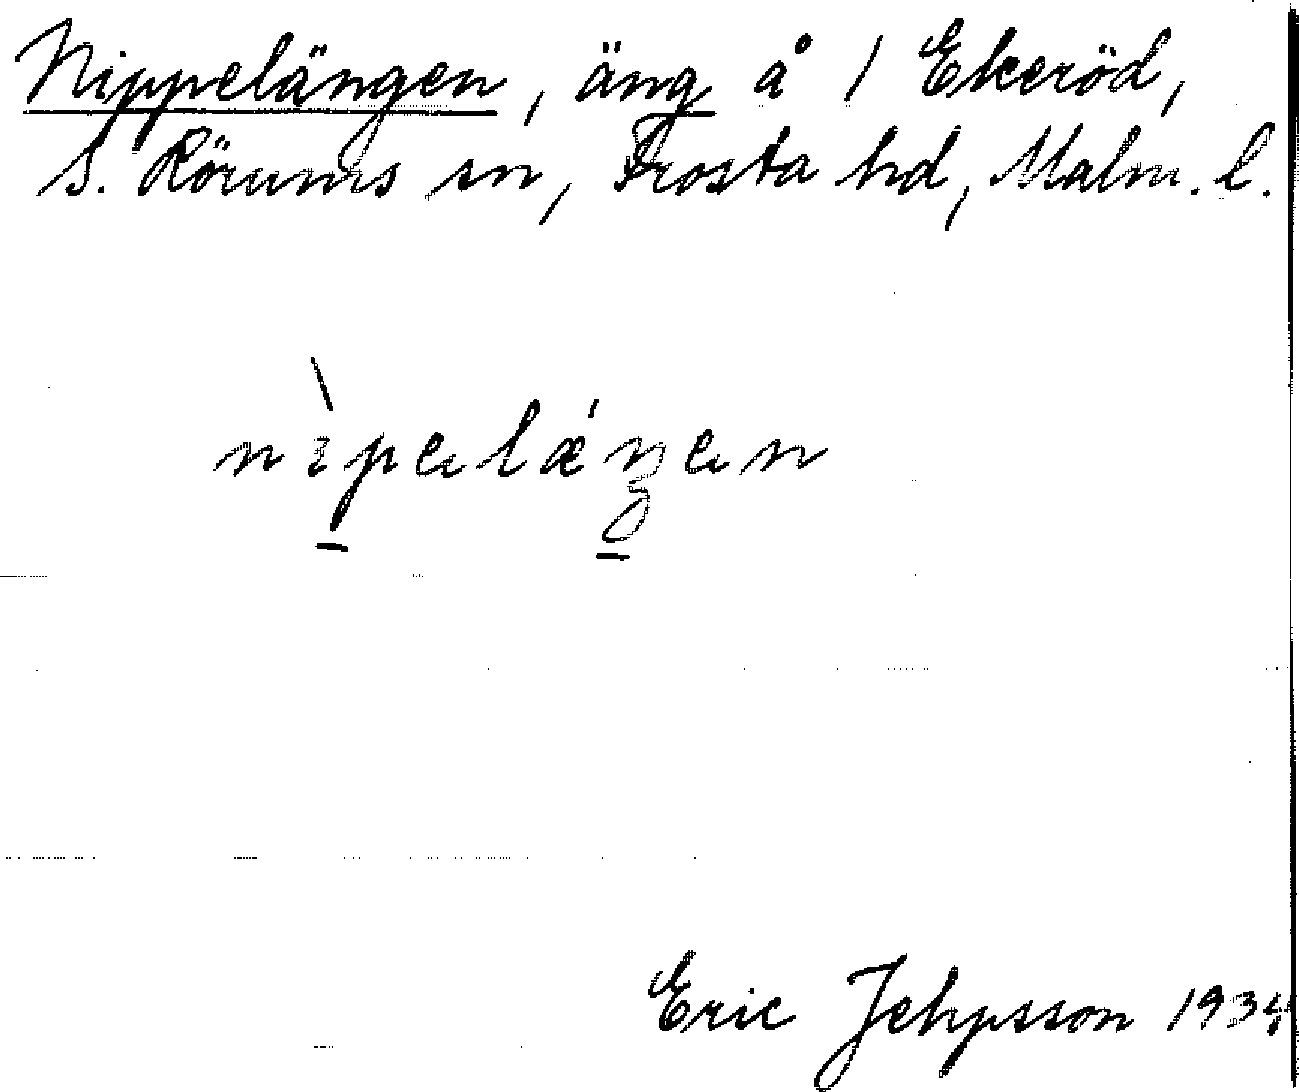 Nippelängen, äng å 1 Ekeröd,
S. Rörums sn, Frosta hd, Malm. l.
nìpelǽŋen
Eric Jehpsson 1934